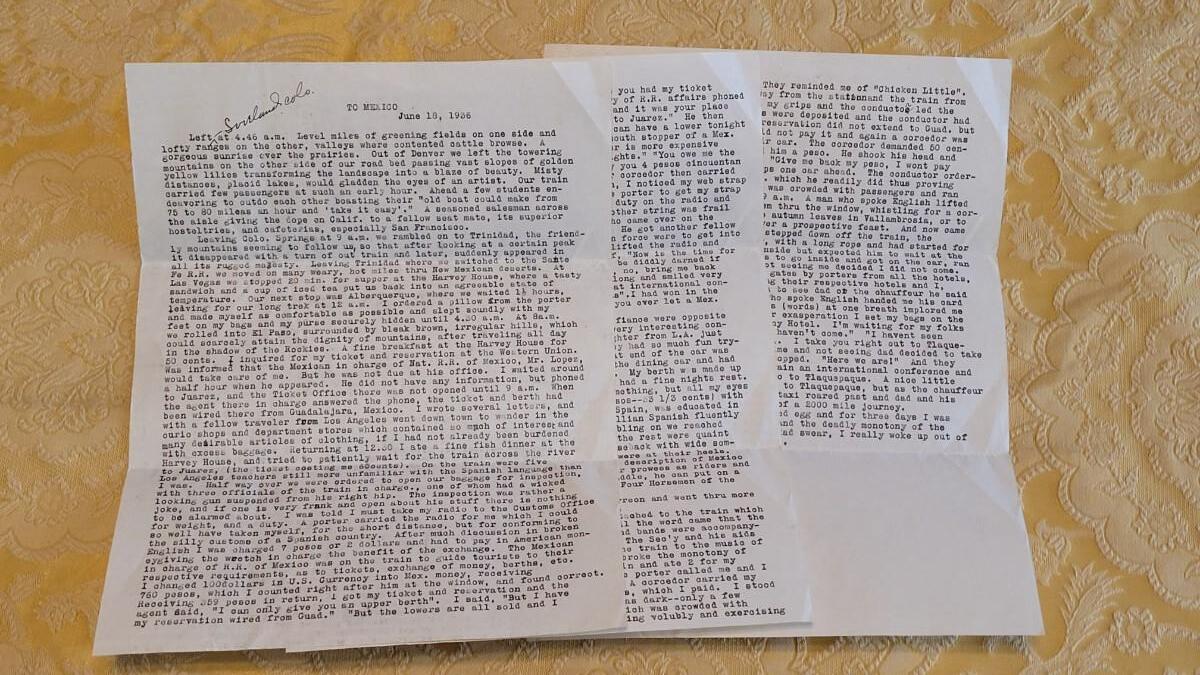 Loveland, Colo.
TO MEXICO
June 18, 1936
Left at 4.45 a.m. Level miles of greening fields on one side and
lofty ranges on the other, valleys where contented cattle browse. A
gorgeous sunrise over the prairies. Out of Denver we left the towering
mountains on the other side of our road bed passing vast slopes of golden
yellow lilies transforming the landscape into a blaze of beauty. Misty
distances, placid lakes, would gladden the eyes of an artist. Our train
carried few passengers at such an early hour. Ahead a few students en-
deavoring to outdo each other boasting their "old boat could make from
75 to 80 miles an hour and 'take it easy'." A seasoned salesman across
the aisle giving the dope on Calif. to a fellow seat mate, its superior
hosteltries, and cafeterias, especially San Francisco.
Leaving Colo. Springs at 9 a.m. we rambled on to Trinidad, the friend-
ly mountains seeming to follow us, so that after looking at a certain peak
it disappeared with a turn of out train and later, suddenly appeared in
all its rugged majesty. Leaving Trinidad where we switched to the Sante
Fe R.R. we moved on many weary, hot miles thru New Mexican deserts. At
Las Vegas we stopped 20 min. for supper at the Harvey House, where a tasty
sandwich and a cup of iced tea put us back into an agreeable state of
temperature. Our next stop was Alberquerque, where we waited 1½ hours,
leaving for our long trek at 12 a.m. I ordered a pillow from the porter
and made myself as comfortable as possible and slept soundly with my
feet on my bags and my purse securely hidden until 4.30 a.m. At 8a.m.
we rolled into El Paso, surrounded by bleak brown, irregular hills, which
could scarcely attain the dignity of mountains, after traveling all day
in the shadow of the Rockies. A fine breakfast at the Harvey House for
50 cents. I inquired for my ticket and reservation at the Western Union.
Was informed that the Mexican in charge of Nat. R.R. of Mexico, Mr. Lopez,
would take care of me. But he was not due at his office. I waited around
a half hour when he appeared. He did not have any information, but phoned
to Juarez, and the Ticket Office there was not opened until 9 a.m. When
the agent there in charge answered the phone, the ticket and berth had
been wired there from Guadalajara, Mexico. I wrote several letters, and
with a fellow traveler from Los Angeles went down town to wander in the
curio shops and department stores which contained so much of interest and
many desirable articles of clothing, if I had not already been burdened
with excess baggage. Returning at 12.30 I ate a fine fish dinner at the
Harvey House, and tried to patiently wait for the train across the river
to Juarez, (the ticket costing me 60cents). On the train were five
Los Angeles teachers still more unfamiliar with the Spanish language than
I was. Half way over we were ordered to open our baggage for inspection,
with three officials of the train in charge, one of whom had a wicked
looking gun suspended from his right hip. The inspection was rather a
joke, and if one is very frank and open about his stuff there is nothing
to be alarmed about. I was told I must take my radio to the Customs Office
for weight, and a duty. A porter carried the radio for me which I could
so well have taken myself, for the short distance, but for conforming to
the silly customs of a Spanish country. After much discussion in broken
English I was charged 7 pesos or 2 dollars and had to pay in American mon-
eygiving the wretch in charge the benefit of the exchange. The Mexican
in charge of R.R. of Mexico was on the train to guide tourists to their
respective requirements, as to tickets, exchange of money, berths, etc.
I changed 100dollars in U.S. Currency into Mex. money, receiving
760 pesos, which I counted right after him at the window, and found correct.
Receiving 359 pesos in return, I got my ticket and reservation and the
agent said, "I can only give you an upper berth". I said, "But I have
my reservation wired from Guad." "But the lowers are all sold and I
you had my ticket
y of R.R. affairs phoned
and it was your place
to Juarez." He then
can have a lower tonight
outh stopper of a Mex.
r is more expensive
ghts." "You owe me the
y you 4 pesos cincuentan
corcedor then carried
, I noticed my web strap
porter to get my strap
duty on the radio and
other string was frail
ho came over on the
He got another fellow
n force were to get into
lifted the radio and
, "Now is the time for
be diddly darned if
no, bring me back
iong and smiled very
at international con-
s". I had won in the
you ever let a Mex.
fiance were opposite
very interesting con-
ghter from L.A. just
y had so much fun try-
t end of the car was
the dining car and had
My berth was made up
had a fine nights rest.
mething, but all my eyes
sos--33 1/3 cents) with
Spain, was educated in
llian Spanish fluently
bling on we reached
the rest were quaint
seback with wide som-
were at their heels.
description of Mexico
r prowess as riders and
ddle, he can put on a
Four Horsemen of the
reon and went thru more
ached to the train which
l the word came that the
d bands were accompany-
The Sec'y and his aids
e train to the music of
broke the monotony of
in and ate 2 for my
porter called me and I
A corcedor carried my
s, which I paid. I stood
as dark--only a few
ich was crowded with
ing volubly and exercising
They reminded me of "Chicken Little".
ay from the stationand the train from
my grips and the conductor led the
s were deposited and the conductor had
reservation did not extend to Guad. but
ld not pay it and again a corcedor was
r car. The corcedor demanded 50 cen-
him a peso. He shook his head and
"Give me back my peso, I wont pay
ps one car ahead. The conductor order-
, which he readily did thus proving
was crowded with passengers and ran
9 a.m. A man who spoke English lifted
m thru the window, whistling for a cor-
autumn leaves in Vallambrosia, or to
er a prospective feast. And now came
stepped down off the train, the
, with a long rope and had started for
inside but expected him to wait at the
s to go inside and get on the car, ran
t seeing me decided I did not come.
gates by porters from all the hotels,
g their respective hotels and I,
to see dad or the chauffeur he said
ho spoke English handed me his card
s (words) at one breath implored me
r exasperation I set my bags on the
y Hotel. I'm waiting for my folks
haven't come." "I havent seen
. I take you right out to Tlaque-
me and not seeing dad decided to take
opped. "Here we are!" And they
ain an international conference and
o to Tlaquepaque. A nice little
to Tlaquepaque, but as the chauffeur
taxi roared past and dad and his
of a 2000 mile journey.
d egg and for three days I was
and the deadly monotony of the
ad swear, I really woke up out of